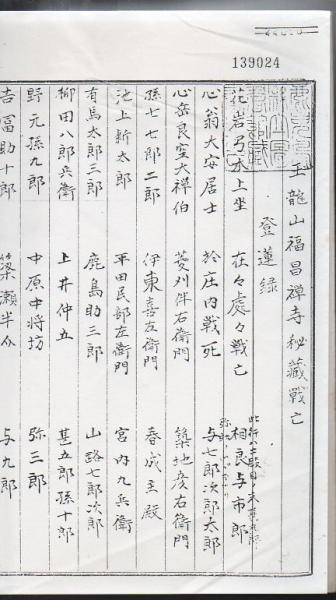 139024
玉龍山福昌禅寺秘藏戰亡
登蓮録
花岩弓木上坐 在々處々戰亡 相良与市郎
心翁大安居士 於庄内戦死 与七郎次郎太郎
心岳良空大禅伯 菱刈伴右衛門 築地彦右衛門
孫七七郎二郎 伊東喜左衛門 春成主殿
池上新太郎 平田民部左衛門 宮内九兵衛
有馬太郎三郎 鹿島助三郎 山路七郎次郎
柳田八郎兵衛 上井仲五 甚五郎孫十郎
野元孫九郎 中原中将坊 弥三郎
吉冨助十郎 簗瀬半介 与九郎